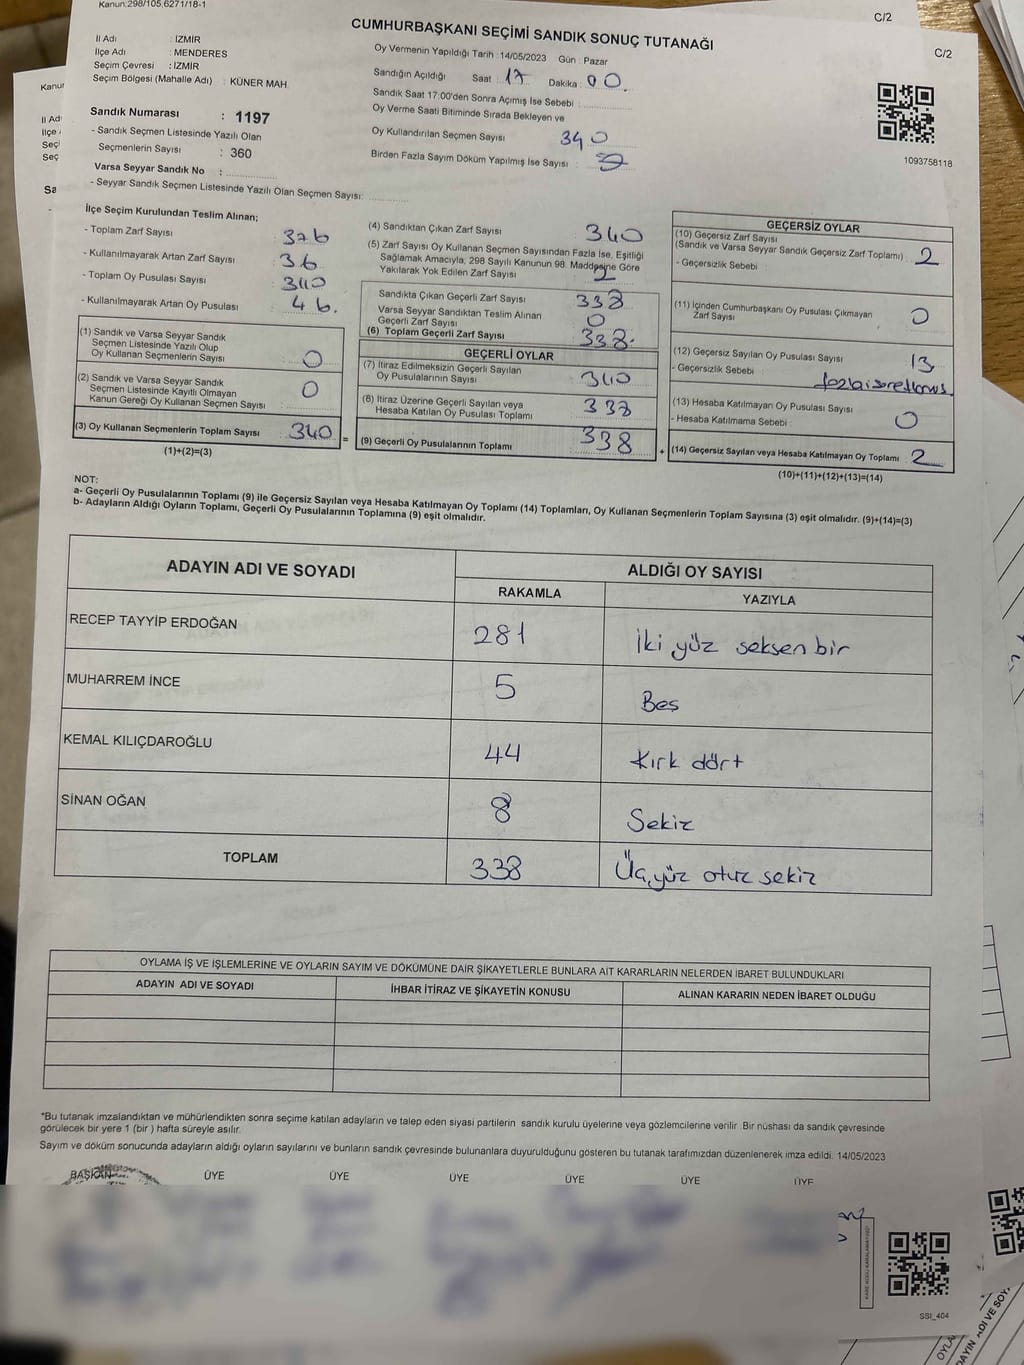 Kanun:298/105,6271/18-1
C/2
C/2
CUMHURBAŞKANI SEÇİMİ SANDIK SONUÇ TUTANAĞI
İl Adı : İZMİR
İlçe Adı : MENDERES
Seçim Çevresi : İZMİR
Seçim Bölgesi (Mahalle Adı) : KÜNER MAH.
Oy Vermenin Yapıldığı Tarih : 14/05/2023 Gün : Pazar
Sandığın Açıldığı Saat : 17 Dakika : 00
Sandık Saat 17:00'den Sonra Açımış İse Sebebi :
Oy Verme Saati Bitiminde Sırada Bekleyen ve
Oy Kullandırılan Seçmen Sayısı 340
Birden Fazla Sayım Döküm Yapılmış İse Sayısı :
1093758118
Sandık Numarası : 1197
- Sandık Seçmen Listesinde Yazılı Olan
Seçmenlerin Sayısı : 360
Varsa Seyyar Sandık No :
- Seyyar Sandık Seçmen Listesinde Yazılı Olan Seçmen Sayısı:
İlçe Seçim Kurulundan Teslim Alınan;
- Toplam Zarf Sayısı 376
- Kullanılmayarak Artan Zarf Sayısı 36
- Toplam Oy Pusulası Sayısı
- Kullanılmayarak Artan Oy Pusulası 46.
(1) Sandık ve Varsa Seyyar Sandık
Seçmen Listesinde Yazılı Olup
Oy Kullanan Seçmenlerin Sayısı 0
(2) Sandık ve Varsa Seyyar Sandık
Seçmen Listesinde Kayıtlı Olmayan
Kanun Gereği Oy Kullanan Seçmen Sayısı 0
(3) Oy Kullanan Seçmenlerin Toplam Sayısı 340 =
(1)+(2)=(3)
(4) Sandıktan Çıkan Zarf Sayısı 340
(5) Zarf Sayısı Oy Kullanan Seçmen Sayısından Fazla İse, Eşitliği
Sağlamak Amacıyla, 298 Sayılı Kanunun 98. Maddesine Göre
Yakılarak Yok Edilen Zarf Sayısı 2
Sandıkta Çıkan Geçerli Zarf Sayısı 338
Varsa Seyyar Sandıktan Teslim Alınan
Geçerli Zarf Sayısı 0
(6) Toplam Geçerli Zarf Sayısı 338.
GEÇERLİ OYLAR
(7) İtiraz Edilmeksizin Geçerli Sayılan
Oy Pusulalarının Sayısı 340
(8) İtiraz Üzerine Geçerli Sayılan veya
Hesaba Katılan Oy Pusulası Toplamı 338
(9) Geçerli Oy Pusulalarının Toplamı 338 +
GEÇERSİZ OYLAR
(10) Geçersiz Zarf Sayısı
(Sandık ve Varsa Seyyar Sandık Geçersiz Zarf Toplamı) : 2
- Geçersizlik Sebebi :
(11) İçinden Cumhurbaşkanı Oy Pusulası Çıkmayan
Zarf Sayısı 0
(12) Geçersiz Sayılan Oy Pusulası Sayısı 13
- Geçersizlik Sebebi :
(13) Hesaba Katılmayan Oy Pusulası Sayısı 0
- Hesaba Katılmama Sebebi :
(14) Geçersiz Sayılan veya Hesaba Katılmayan Oy Toplamı : 2
(10)+(11)+(12)+(13)=(14)
NOT:
a- Geçerli Oy Pusulalarının Toplamı (9) ile Geçersiz Sayılan veya Hesaba Katılmayan Oy Toplamı (14) Toplamları, Oy Kullanan Seçmenlerin Toplam Sayısına (3) eşit olmalıdır. (9)+(14)=(3)
b- Adayların Aldığı Oyların Toplamı, Geçerli Oy Pusulalarının Toplamına (9) eşit olmalıdır.
ADAYIN ADI VE SOYADI
ALDIĞI OY SAYISI
RAKAMLA YAZIYLA
RECEP TAYYİP ERDOĞAN 281 İki yüz seksen bir
MUHARREM İNCE 5 Beş
KEMAL KILIÇDAROĞLU 44 Kırk dört
SİNAN OĞAN 8 Sekiz
TOPLAM 338 Üç yüz otuz sekiz
OYLAMA İŞ VE İŞLEMLERİNE VE OYLARIN SAYIM VE DÖKÜMÜNE DAİR ŞİKAYETLERLE BUNLARA AİT KARARLARIN NELERDEN İBARET BULUNDUKLARI
ADAYIN ADI VE SOYADI İHBAR İTİRAZ VE ŞİKAYETİN KONUSU ALINAN KARARIN NEDEN İBARET OLDUĞU
*Bu tutanak imzalandıktan ve mühürlendikten sonra seçime katılan adayların ve talep eden siyasi partilerin sandık kurulu üyelerine veya gözlemcilerine verilir. Bir nüshası da sandık çevresinde
görülecek bir yere 1 (bir ) hafta süreyle asılır.
Sayım ve döküm sonucunda adayların aldığı oyların sayılarını ve bunların sandık çevresinde bulunanlara duyurulduğunu gösteren bu tutanak tarafımızdan düzenlenerek imza edildi. 14/05/2023
BAŞKAN ÜYE ÜYE ÜYE ÜYE ÜYE ÜYE
SSI_404